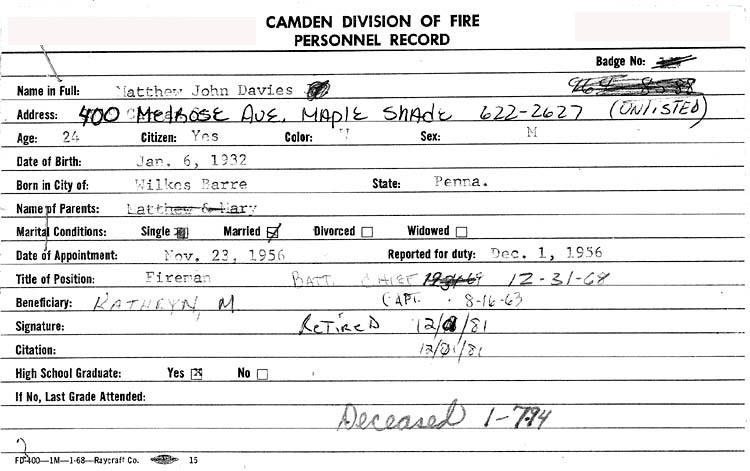 CAMDEN DIVISION OF FIRE
PERSONNEL RECORD
Badge No:
Name in Full: Matthew John Davies
Address: 400 MELROSE AVE. MAPLE SHADE 622-2627 (UNLISTED)
Age: 24 Citizen: Yes Color: W Sex: M
Date of Birth: Jan. 6, 1932
Born in City of: Wilkes Barre State: Penna.
Name of Parents: Matthew & Mary
Marital Conditions: Single Married Divorced Widowed
Date of Appointment: Nov. 23, 1956 Reported for duty: Dec. 1, 1956
Title of Position: Fireman BATT. CHIEF 12-31-68
Beneficiary: KATHRYN M CAPT. 8-16-63
Signature: RETIRED 12/01/81
Citation: 12/01/81
High School Graduate: Yes No
If No, Last Grade Attended:
Deceased 1-7-94
FD-400—1M—1-68—Raycraft Co. 15